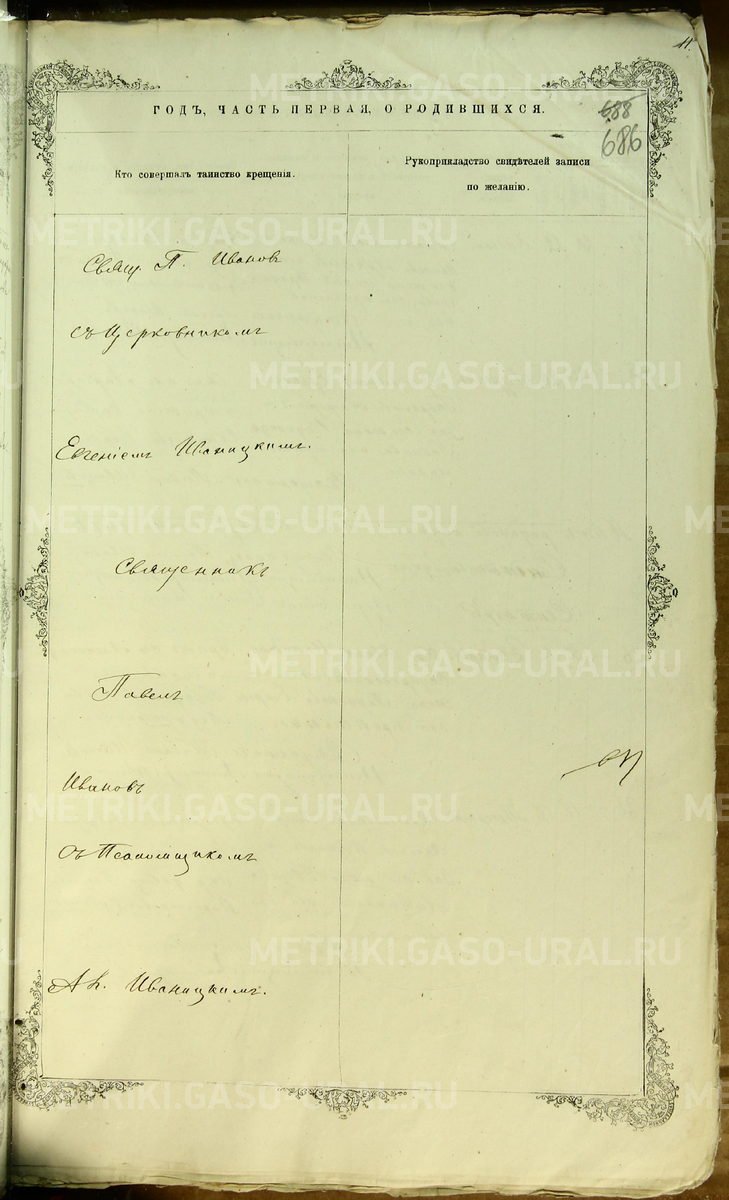 11.
ГОДЪ, ЧАСТЬ ПЕРВАЯ, О РОДИВШИХСЯ.
688
686
Кто совершалъ таинство крещенія.
Рукоприкладство свидѣтелей записи
по желанію.
Свящ. П. Иванов
съ Церковникомъ
Евгеніемъ Иваницкимъ.
Священникъ
Павелъ
Ивановъ
съ Псаломщикомъ
Иваницкимъ.
METRIKI.GASO-URAL.RU